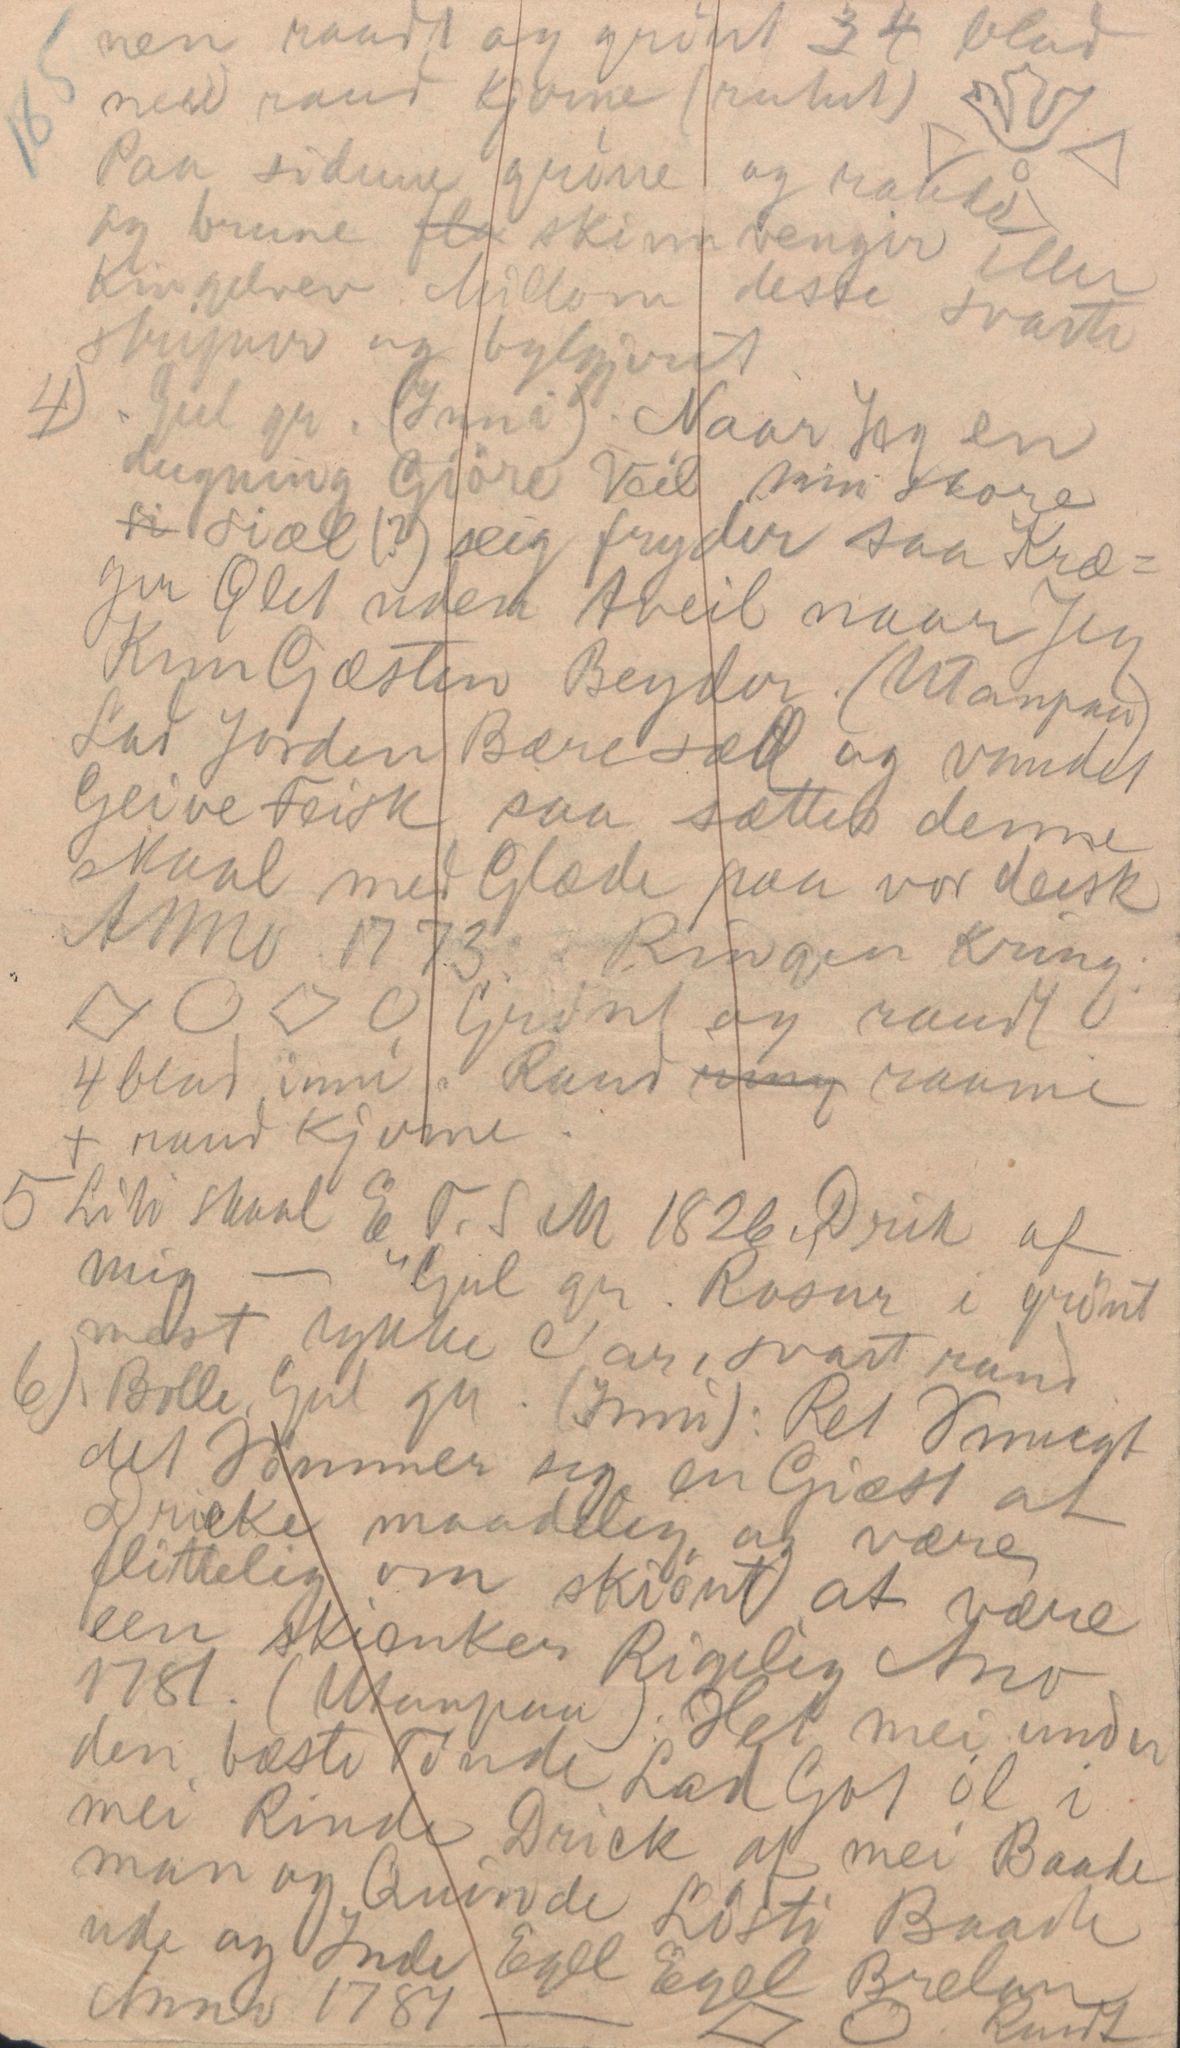 165
nen raudt og grönt 3 4 blad
med raud kjerne (rutut)
Paa sidune gröne og raude
og brune fla skinnvengir eller
Kingelvev. Millom desse svarte
stripur og bylgjut
4) Gul gr. (Inni). Naar Jeg en
dugning Giöre Veil min store
si siæl (?) seig fryder saa Kræ=
ger Ølet uden tveil naar Jeg
Kun Gæsten Beyder. (Utanpaa)
Lad Jorden Bære sæd og vandet
Geive Feisk saa sættes denne
skaal med Glæde paa vor deisk
ANNO 1773. Ringen kring.
Grönt og raudt
4 blad inni. Raud ring raame
+ raud kjerne.
5 Liti skaal E T. S M 1826. Drik af
mig — " Gul gr. Rosur i grönt
mest tykke C ar, svart rand
6) Bolle. Gul gr. (Inni): Ret
det Sömmer sig en Giæst at
Dricke maadelig og være
flittelig om skiönt at være
een skienker Rigelig Ano
1781. (Utanpaa). Het mei under
den bæste Tönde Lad Got öl i
mei Rinde Drick af mei Baade
man og Quinde Lösti Baade
ude og Inde Egel Egel Brelan
Anno 1781 — Rundt